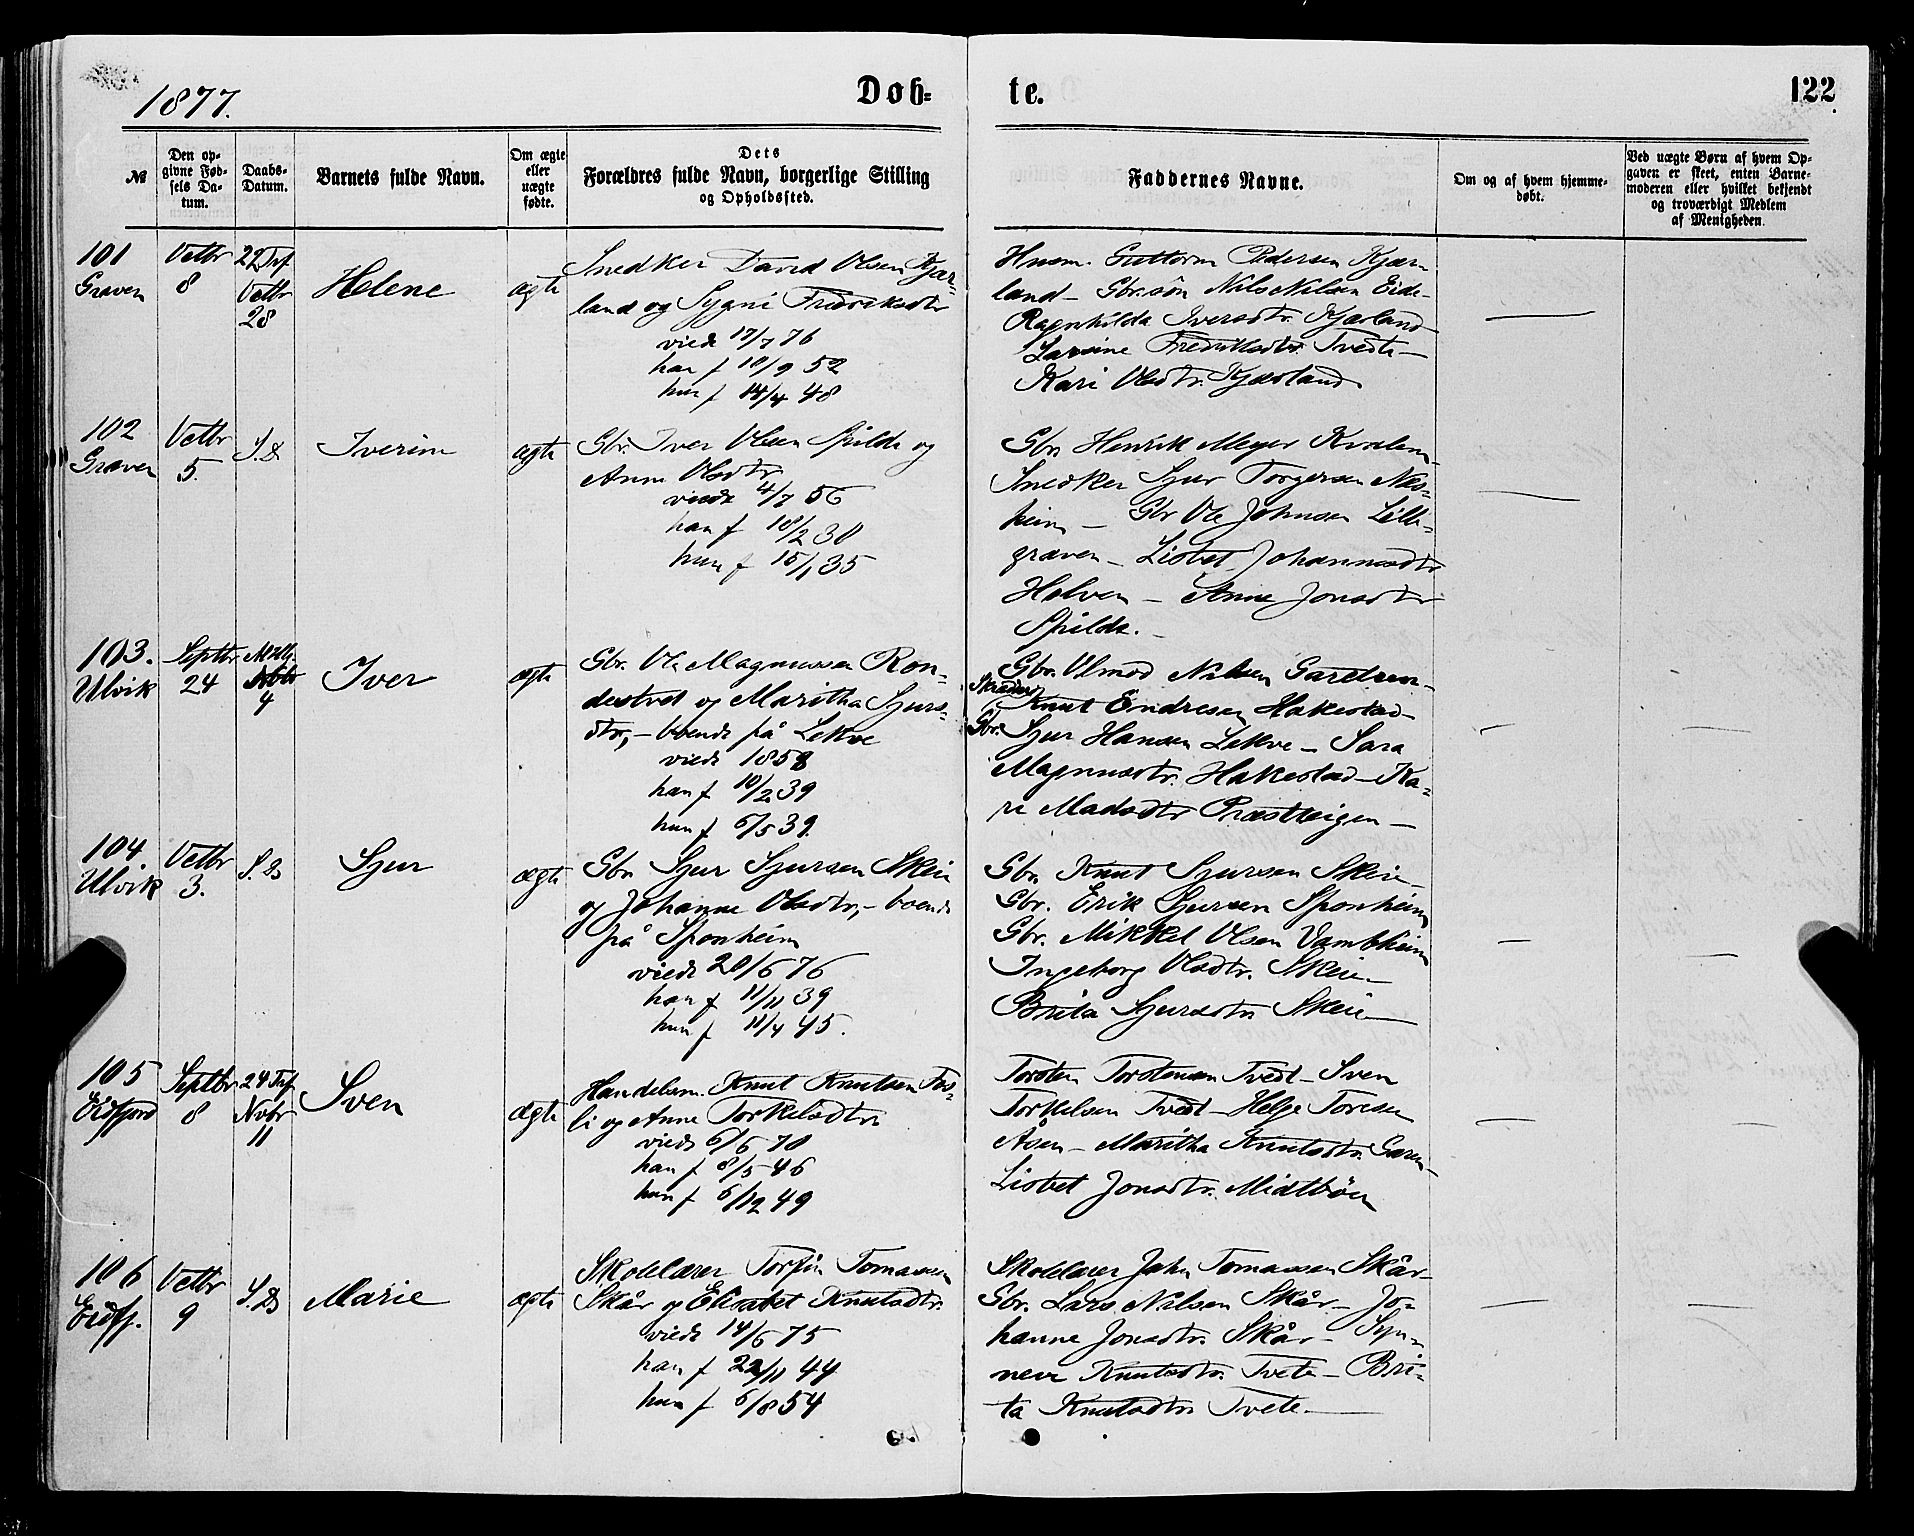 1877.
Døb=
te.
122
№
Den op=
givne Fød=
sels Da=
tum.
Daabs=
Datum.
Barnets fulde Navn.
Om ægte
eller
uægte
fødte.
Dets
Forældres fulde Navn, borgerlige Stilling
og Opholdssted.
Faddernes Navne.
Om og af hvem hjemme=
døbt.
Ved uægte Børn af hvem Op=
gaven er skeet, enten Barne=
moderen eller hvilket bekjendt
og troværdigt Medlem
af Menigheden.
101
Graven
Octbr
8
22 Trf
Octbr
28
Helene
ægte
Snedker David Olsen Kjær=
land og Sygni Fredriksdtr
viede 17/7 76
han f 10/9 52
hun f 14/4 48
Husm. Guttorm Pedersen Kjær=
land – Gbr.søn Nils Nilsen Eide –
Ragnhilda Iversdtr. Kjærland –
Larsine Fredriksdtr. Tvedte –
Kari Olsdtr. Kjærland
102
Graven
Octbr
5.
S.D.
Iverine
ægte
Gbr. Iver Olsen Spilde og
Anna Olsdtr
viede 4/7 56
han f 18/2 30
hun f 15/1 35
Gbr. Henrik Meyer Kvalem –
Snedker Sjur Torgersen Næs=
heim – Gbr Ole Johnsen Lille=
graven – Lisbet Johannesdtr
Helven – Anne Jonsdtr
Spilde. –
103.
Ulvik
Septbr
24
Novbr
4
Iver
ægte
Gbr. Ole Magnussen Ron=
destvet og Maritha Sjurs=
dtr, – boende på Lekve
viede 1858
han f 10/2 39
hun f 6/5 39.
Gbr. Olmod Nilsen Garetun –
Skræder Knut Endresen Hakestad –
Gbr. Sjur Hansen Lekve – Sara
Magnusdtr. Hakestad – Ka=
ri Madsdtr Præstteigen –
104.
Ulvik
Octbr
3.
S.D.
Sjur
ægte
Gbr. Sjur Sjursen Skeie
og Johanne Olsdtr, – boende
på Sponheim
viede 20/6 76
han f 11/11 39
hun f 11/4 45.
Gbr. Knut Sjursen Skeie –
Gbr. Erik Sjursen Sponheim
Gbr. Mikkel Olsen Vambheim
Ingeborg Olsdtr. Skeie –
Brita Sjursdtr Skeie –
105
Eidfjord
Septbr
8
24 Trf
Nvbr
11
Sven
ægte
Handelsm. Knut Knutsen Fos=
li og Anne Torkelsdtr
viede 6/6 70
han f 8/5 46
hun f 6/12 49
Torsten Torstensen Tvedt – Sven
Torkelsen Tvedt – Helge Toresen
Åsen – Maritha Knutsdtr. Garen –
Lisbet Jonsdtr. Midtbøen
106
Eidfj.
Octbr
9
S.D.
Marie
ægte
Skolelærer Torfin Tomassen
Skår og Elisabet Knutsdtr.
viede 14/6 75
han f 22/11 44
hun f 6/8 54
Skolelærer John Tomassen Skår –
Gbr. Lars Nilsen Skår – Jo=
hanne Jonsdtr. Skår – Syn=
neve Knutsdtr. Tvete – Bri=
ta Knutsdtr Tvete –